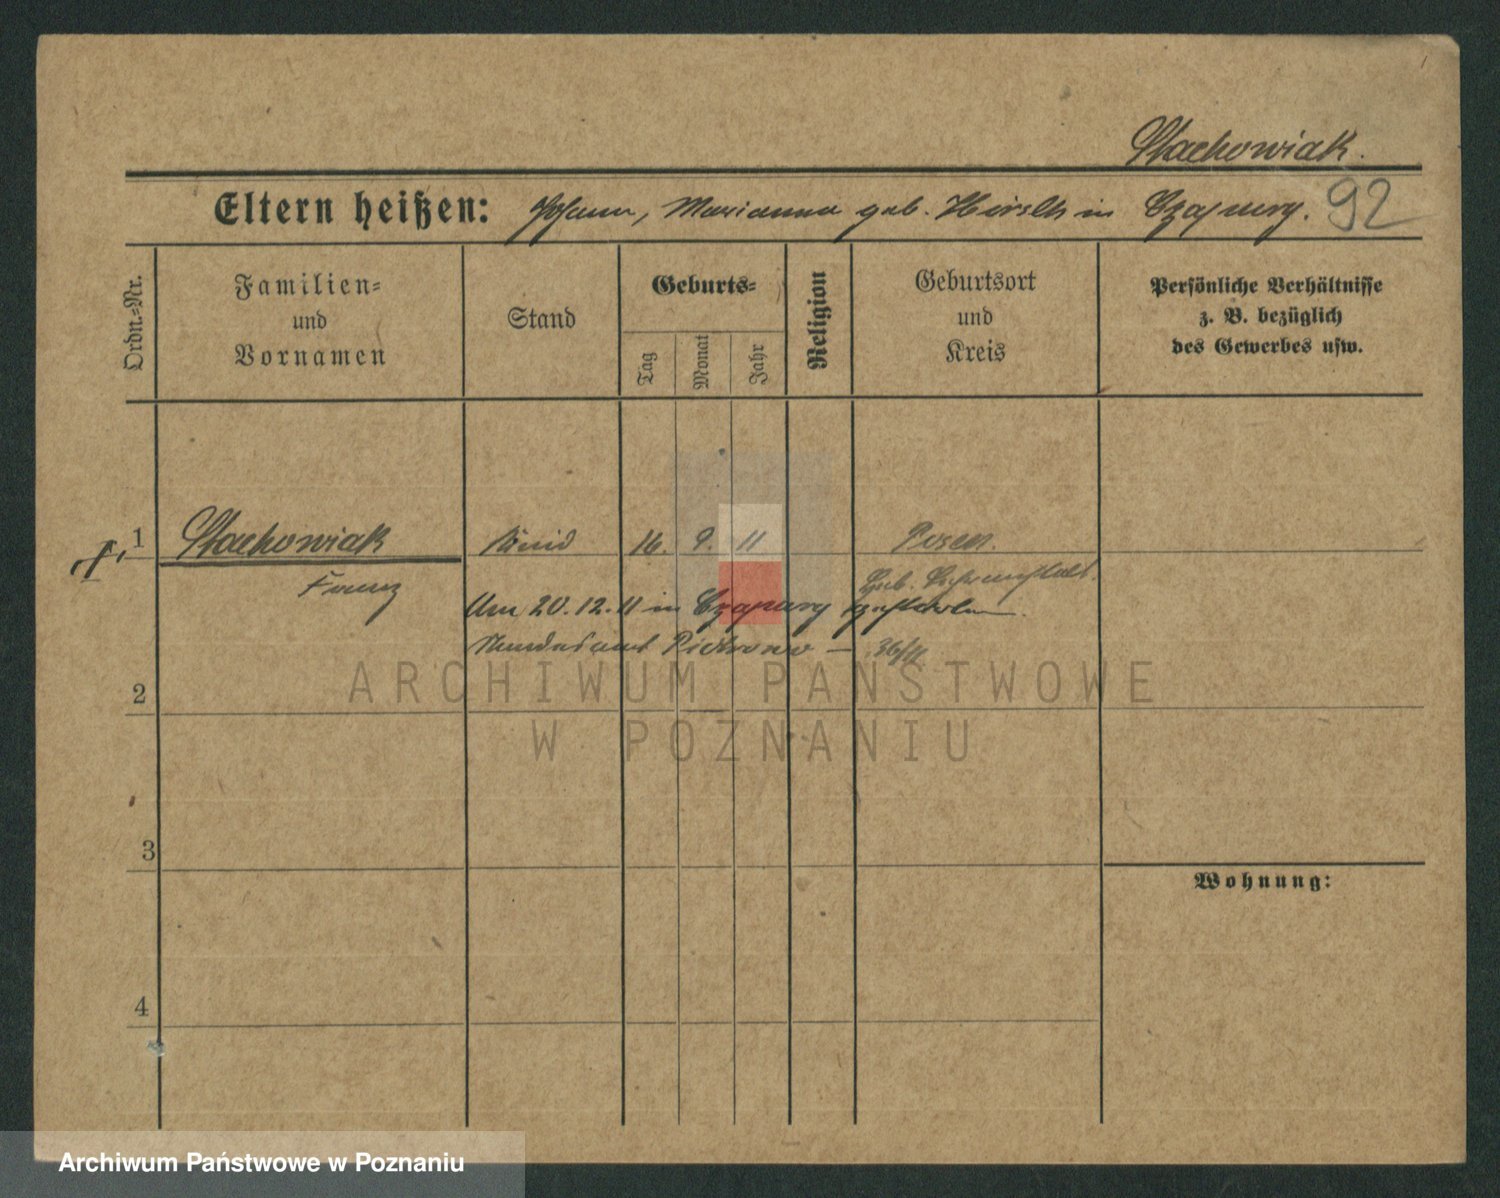 Stachowiak.
Eltern heißen: Johann, Marianna geb. Hirsch in Czapury. 92
Ordn.-Nr.
Familien-
und
Vornamen
Stand
Geburts-
Tag
Monat
Jahr
Religion
Geburtsort
und
Kreis
Persönliche Verhältnisse
z. B. bezüglich
des Gewerbes usw.
1 Stachowiak Kind 16. 9. 11 Posen.
Franz Geb.
Am 20.12.11 in Czapury gestorben.
Standesamt Piotrowo — 36/11
2
ARCHIWUM PAŃSTWOWE
W POZNANIU
3
Wohnung:
4
Archiwum Państwowe w Poznaniu